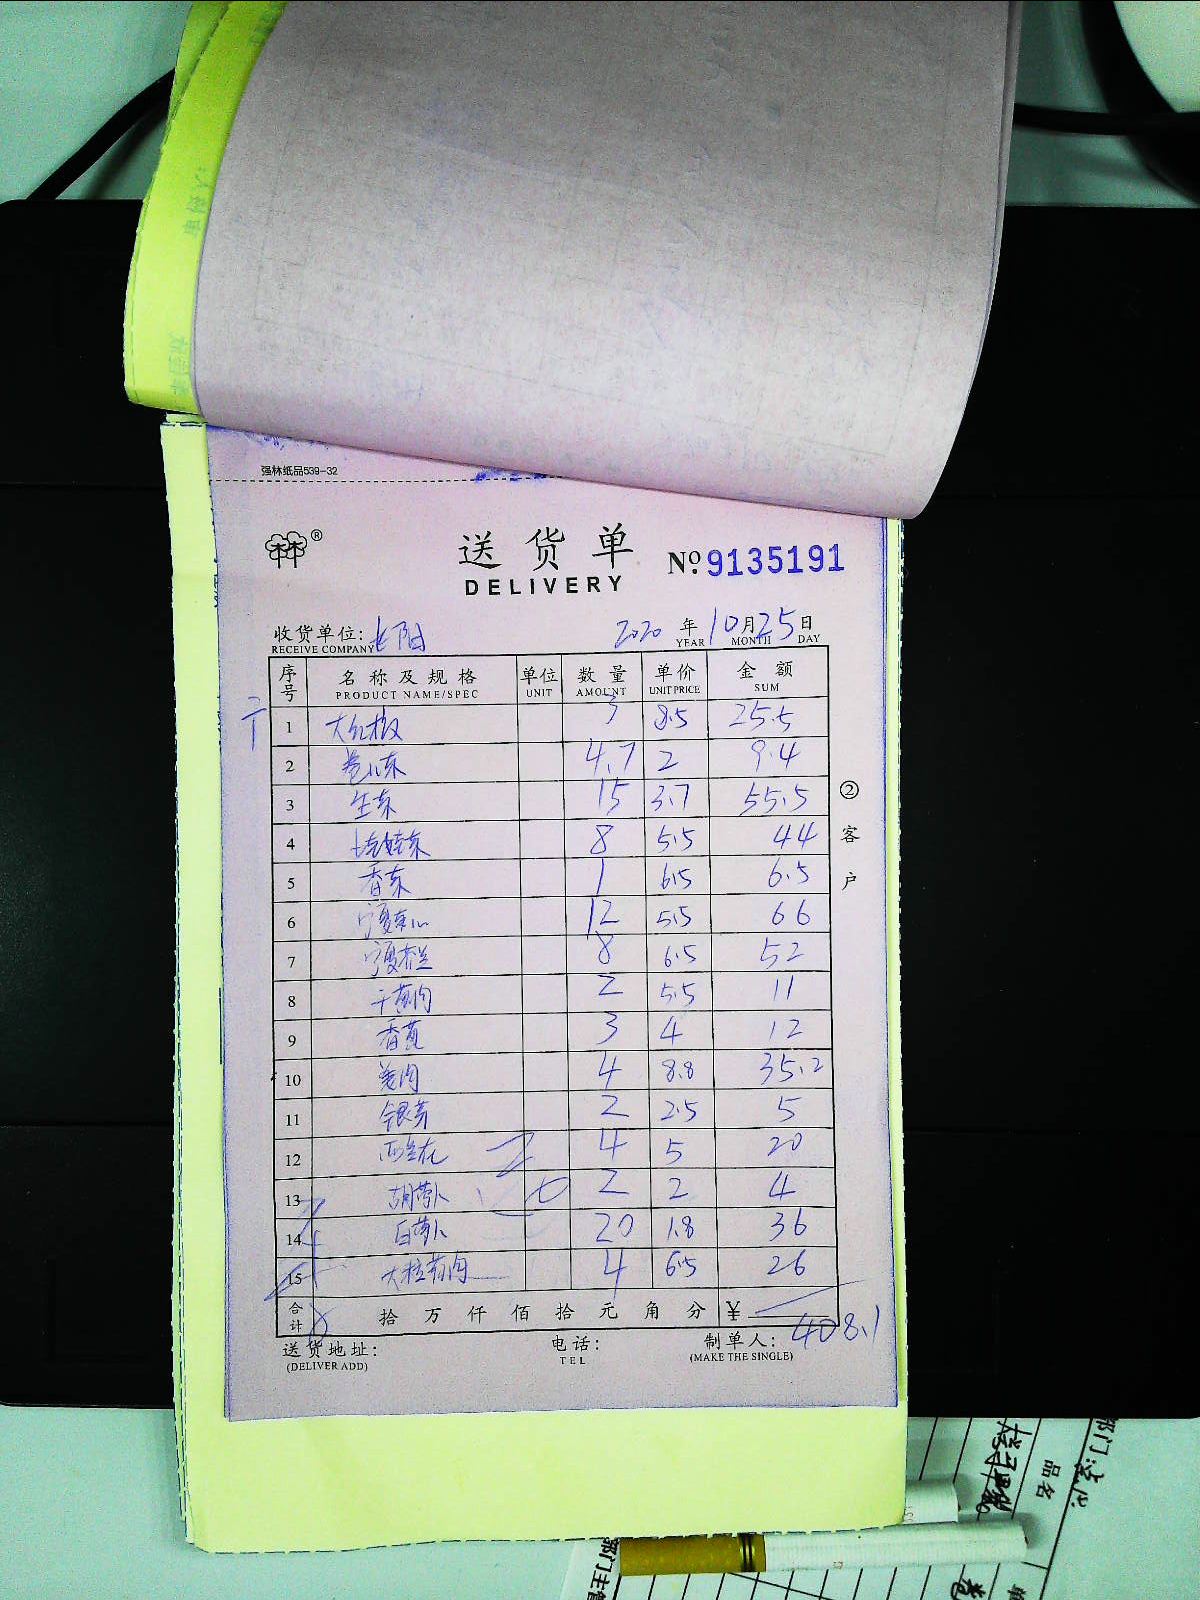 强林纸品539-32
林®
送货单
DELIVERY
No. 9135191
收货单位: 2020 年 10 月 25 日
RECEIVE COMPANY YEAR MONTH DAY
序号 名称及规格 单位 数量 单价 金额
PRODUCT NAME/SPEC UNIT AMOUNT UNIT PRICE SUM
1 大红椒 3 8.5 25.5
2 4.7 2 9.4
3 生菜 15 3.7 55.5
4 娃娃菜 8 5.5 44
5 香菜 1 6.5 6.5
6 宁夏菜心 12 5.5 66
7 宁夏芥兰 8 6.5 52
8 干葱肉 2 5.5 11
9 香葱 3 4 12
10 姜肉 4 8.8 35.2
11 银芽 2 2.5 5
12 西兰花 4 5 20
13 胡萝卜 2 2 4
14 白萝卜 20 1.8 36
15 大粒蒜肉 4 6.5 26
合计 拾 万 仟 佰 拾 元 角 分 ¥ 408.1
送货地址: 电话: 制单人:
(DELIVER ADD) TEL (MAKE THE SINGLE)
② 客户
品名
部门主管